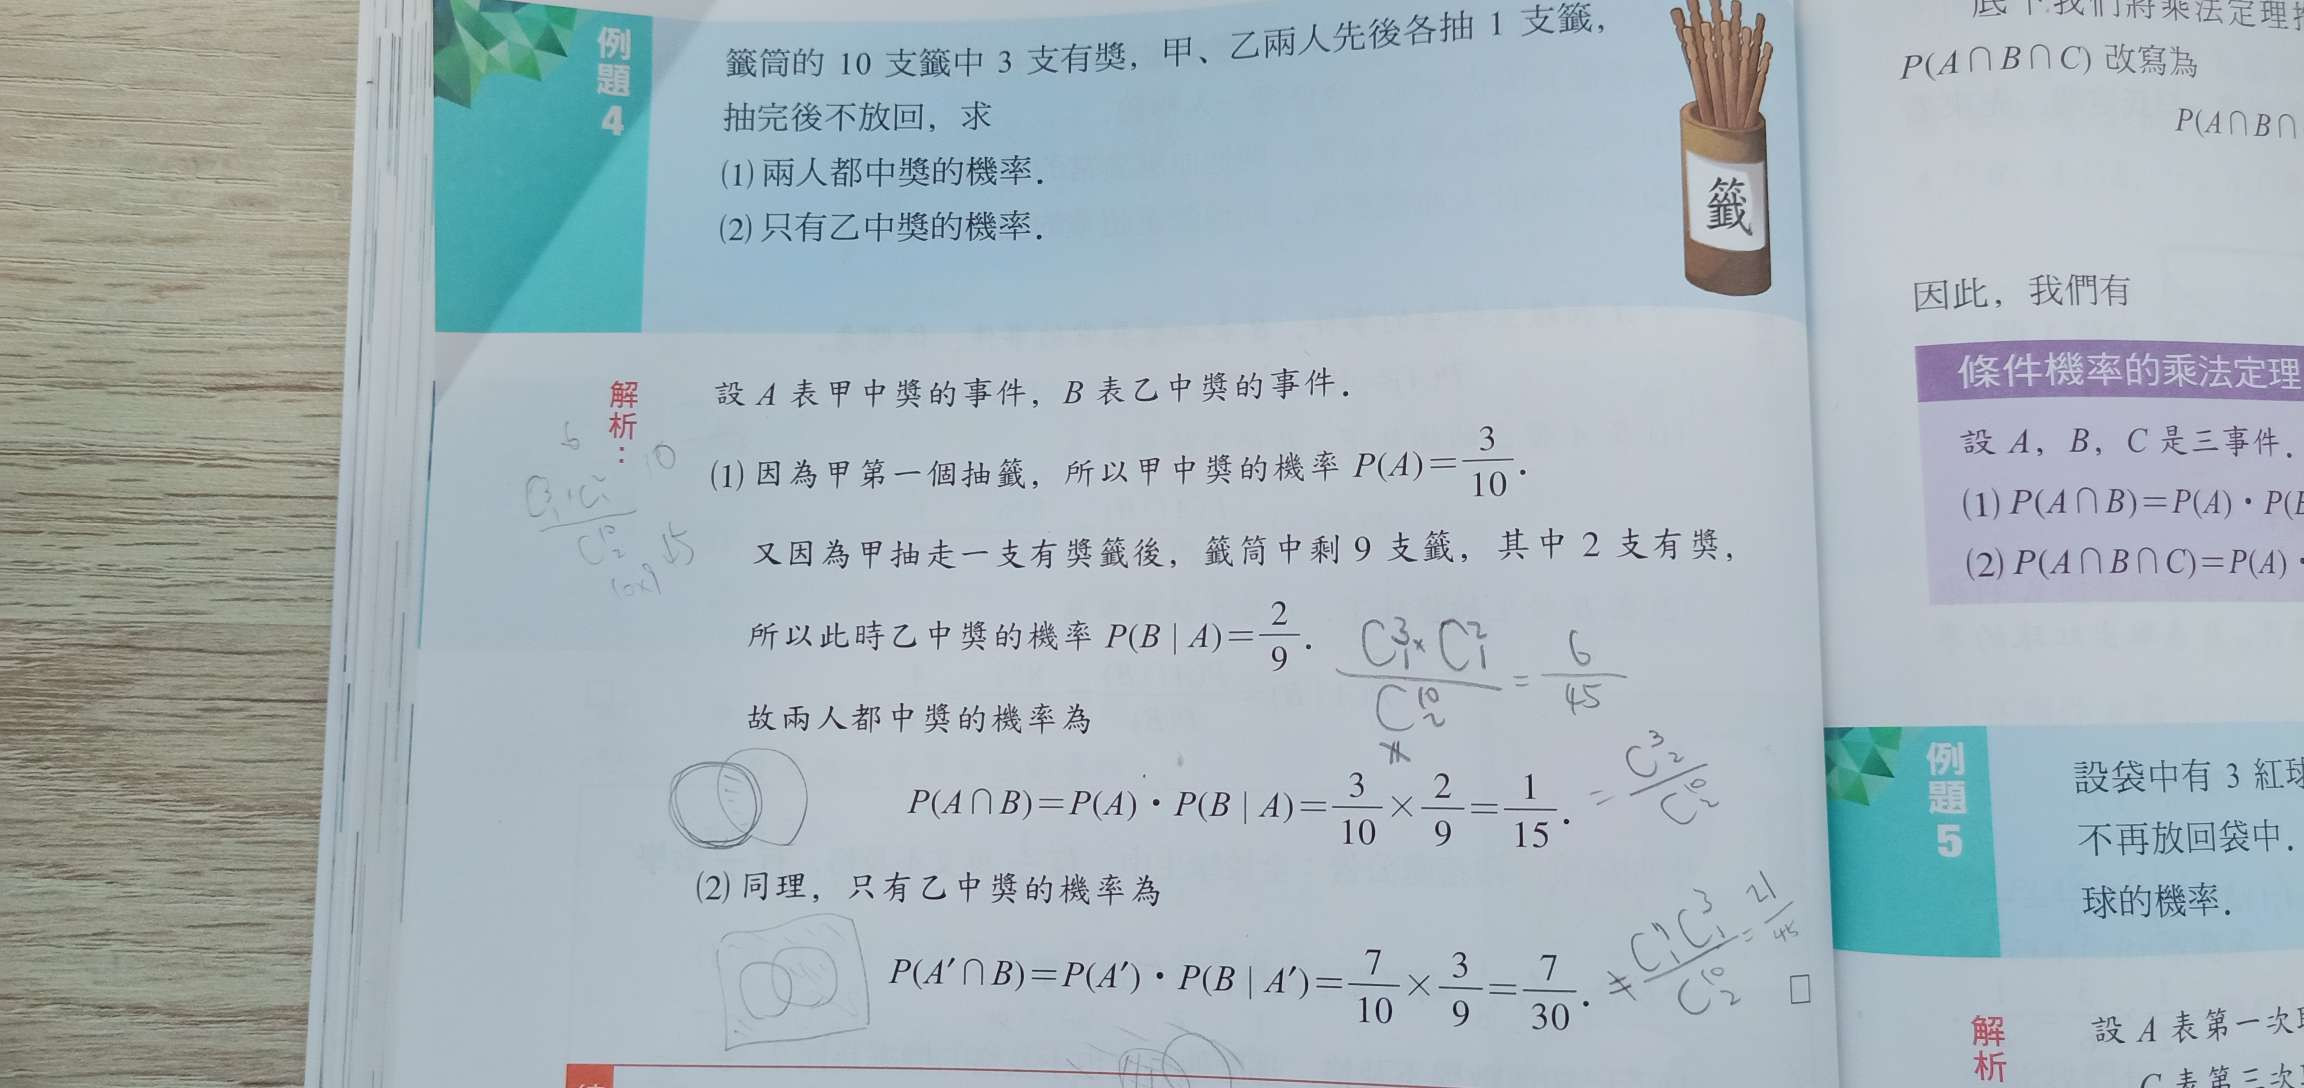 例題4
籤筒的 10 支籤中 3 支有獎，甲、乙兩人先後各抽 1 支籤，
抽完後不放回，求
(1) 兩人都中獎的機率．
(2) 只有乙中獎的機率．
籤
解析：
設 A 表甲中獎的事件，B 表乙中獎的事件．
(1) 因為甲第一個抽籤，所以甲中獎的機率 P(A)=3/10．
又因為甲抽走一支有獎籤後，籤筒中剩 9 支籤，其中 2 支有獎，
所以此時乙中獎的機率 P(B | A)=2/9．
C^3_1 × C^2_1 / C^10_2 = 6/45
故兩人都中獎的機率為
P(A∩B)=P(A)·P(B | A)=3/10×2/9=1/15．
= C^3_2 / C^10_2
(2) 同理，只有乙中獎的機率為
P(A′∩B)=P(A′)·P(B | A′)=7/10×3/9=7/30．
≠ C^7_1 C^3_1 / C^10_2 = 21/45
□
P(A∩B∩C) 改寫為
P(A∩B∩
因此，我們有
條件機率的乘法定理
設 A，B，C 是三事件．
(1) P(A∩B)=P(A)·P(B
(2) P(A∩B∩C)=P(A)·
例題5
設袋中有 3 紅球
不再放回袋中．
球的機率．
解析
設 A 表第一次
C 表第三次